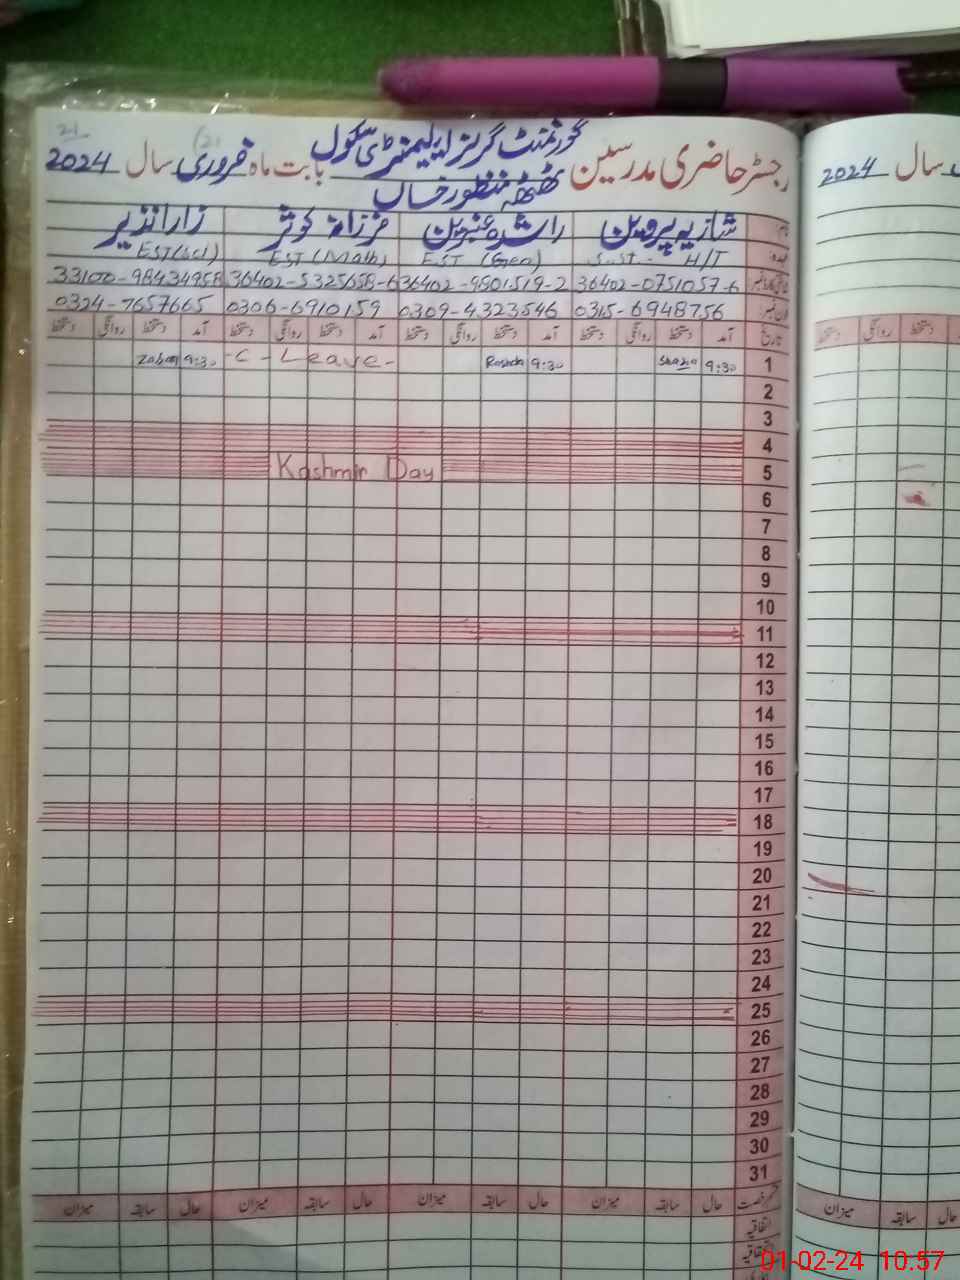 رجسٹر حاضری مدرسین گورنمنٹ گرلز ایلیمنٹری سکول ٹھٹھہ منظور خاں بابت ماہ فروری سال 2024
نام شازیہ پروین راشدہ عنبرین فرزانہ کوثر زارا نذیر
عہدہ H/T EST (Gen) EST (Math) EST (Sci)
36402-0751057-6 36402-9801519-2 36402-5325658-6 33100-98434958
0315-6948756 0309-4323546 0306-6910159 0324-7657665
تاریخ آمد دستخط روانگی دستخط آمد دستخط روانگی دستخط آمد دستخط روانگی دستخط آمد دستخط روانگی
1 9:30 Shazia 9:30 Rashda -C- Leave- 9:30
2
3
4
5 Kashmir Day
6
7
8
9
10
11
12
13
14
15
16
17
18
19
20
21
22
23
24
25
26
27
28
29
30
31
حال سابقہ میزان حال سابقہ میزان حال سابقہ میزان حال سابقہ میزان
اتفاقیہ
سال 2024
دستخط روانگی دستخط
حال سابقہ میزان
01-02-24 10.57